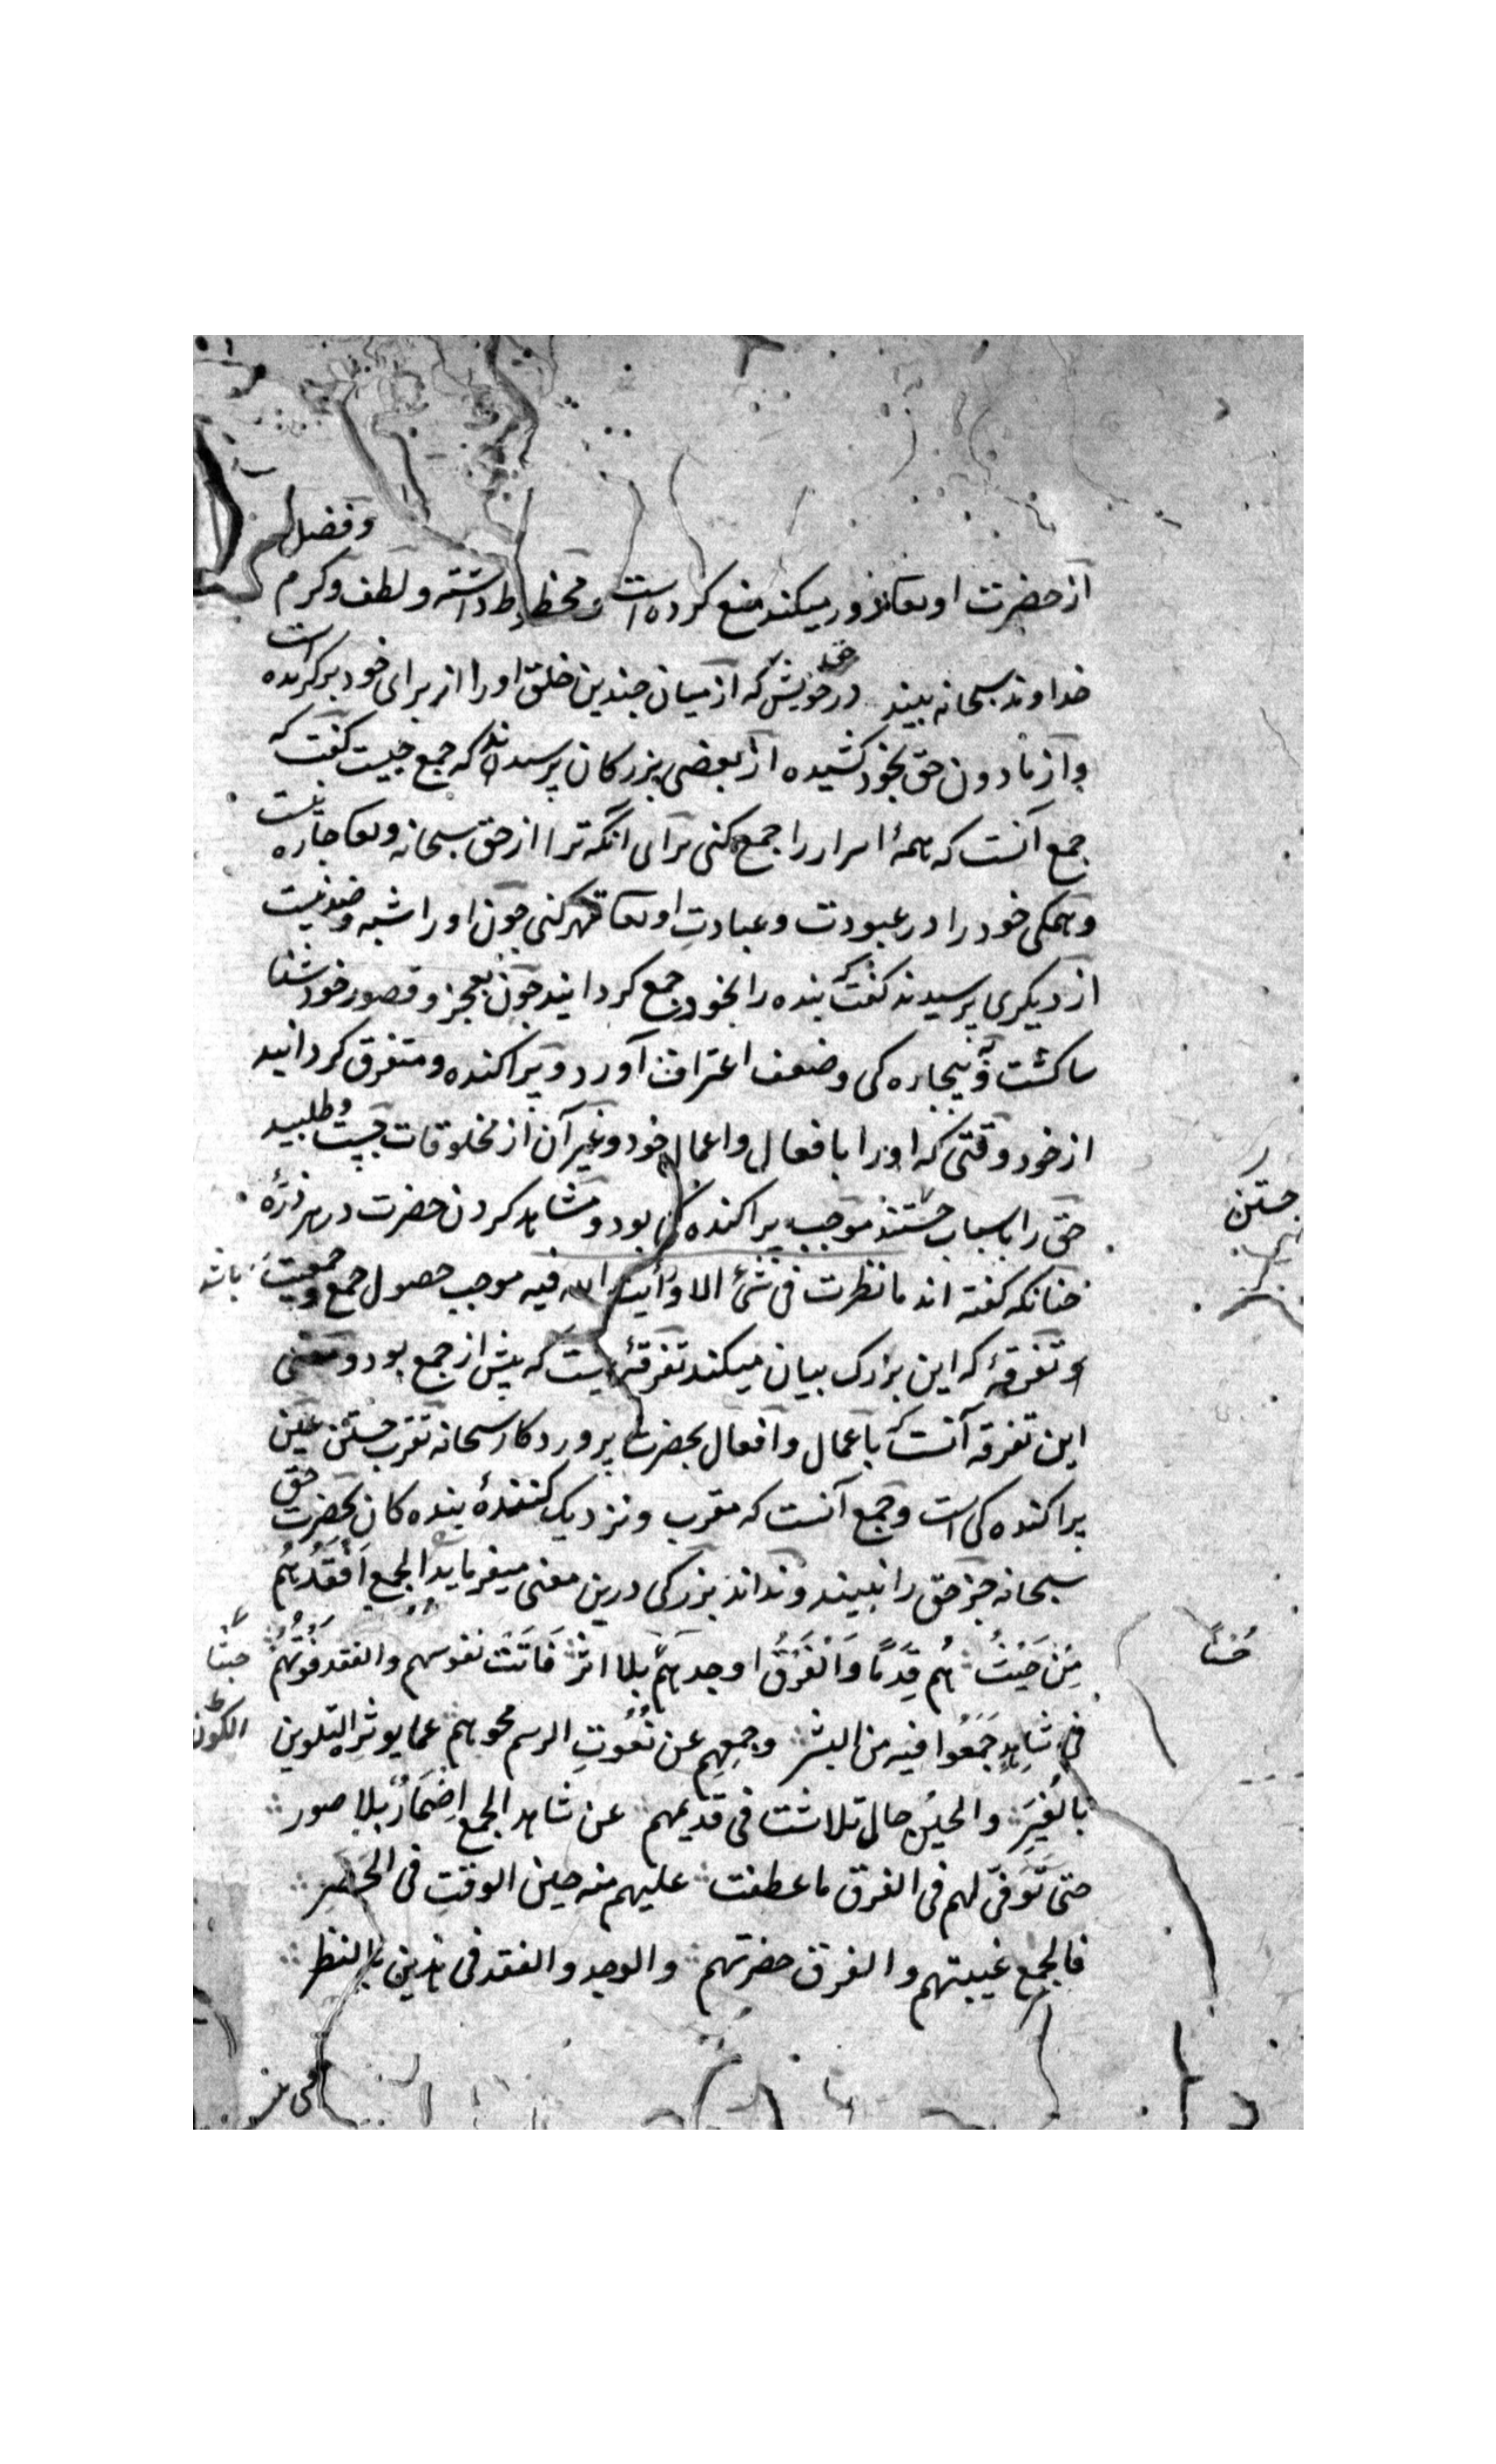 وفضل
از حضرت او تعا دور میکند منع کرده است و محظوظ داشته و لطف و کرم
خداوند سبحانه بیند در حق خویش که از میان چندین خلق او را از برای خود برگزیده است
و از مادون حق بخود کشیده از بعضی بزرکان پرسیده اند که جمع چیست کفت که
جمع آنست که همهٔ اسرار را جمع کنی برای انکه ترا از حق سبحانه و تعا چاره نیست
و همکی خود را در عبودت و عبادتِ او تعا قهر کنی چون او را شبه و ضد نیست
از دیکری پرسیدند کفت که بنده را بخود جمع کردانید چون بعجز و قصور خود شنا
سا کشت و به بیچاره کی و ضعف اعتراف آورد و پراکنده و متفرق کردانید
از خود وقتی که او را بافعال و اعمال خود و غیر آن از مخلوقات جست و طلبید
حق را باسباب جستند موجب پراکنده کی بود و مشاهده کردن حضرت در هر ذرّهٔ
جستن
چنانکه کفته اند ما نظرت فی شیٔ الا ورأیت الله فیه موجب حصول جمع و جمعیت باشد
و تفرقهٔ که این بزرک بیان میکند تفرقهٔ یست که پیش از جمع بود و معنی
این تفرقه آنست که باعمال و افعال بحضرت پروردکار سبحانه تقرب جستن عین
پراکنده کی است و جمع آنست که مقرب و نزدیک کنندهٔ بنده کان بحضرت حق
سبحانه جز حق را نبیند و نداند بزرکی درین معنی میفرماید الجمع اَفْقَدَهُم
مِنْ حَیْثُ هُم قِدَمًا وَالْفَرْقُ اوجدهم بلا اثر فَاتَتْ نفوسهم والفقد فَوْتُهُم
حینًا
فی شاهدٍ جُمِعُوا فیه من البشر وجمعهم عن نُعُوتِ الرسم محوهم عما یوثره التلوین
الکون
بالغِیَرِ والحین حال تلاشت فی قدیمهم عن شاهد الجمع اِضمَارٌ بلا صور
حتی تَوَفّی لهم فی الفرق ما عطفت علیهم منه حین الوقتِ فی الحضر
فالجمع غیبتهم والفرق حضرتهم والوجد والفقد فی هذین بالنظر